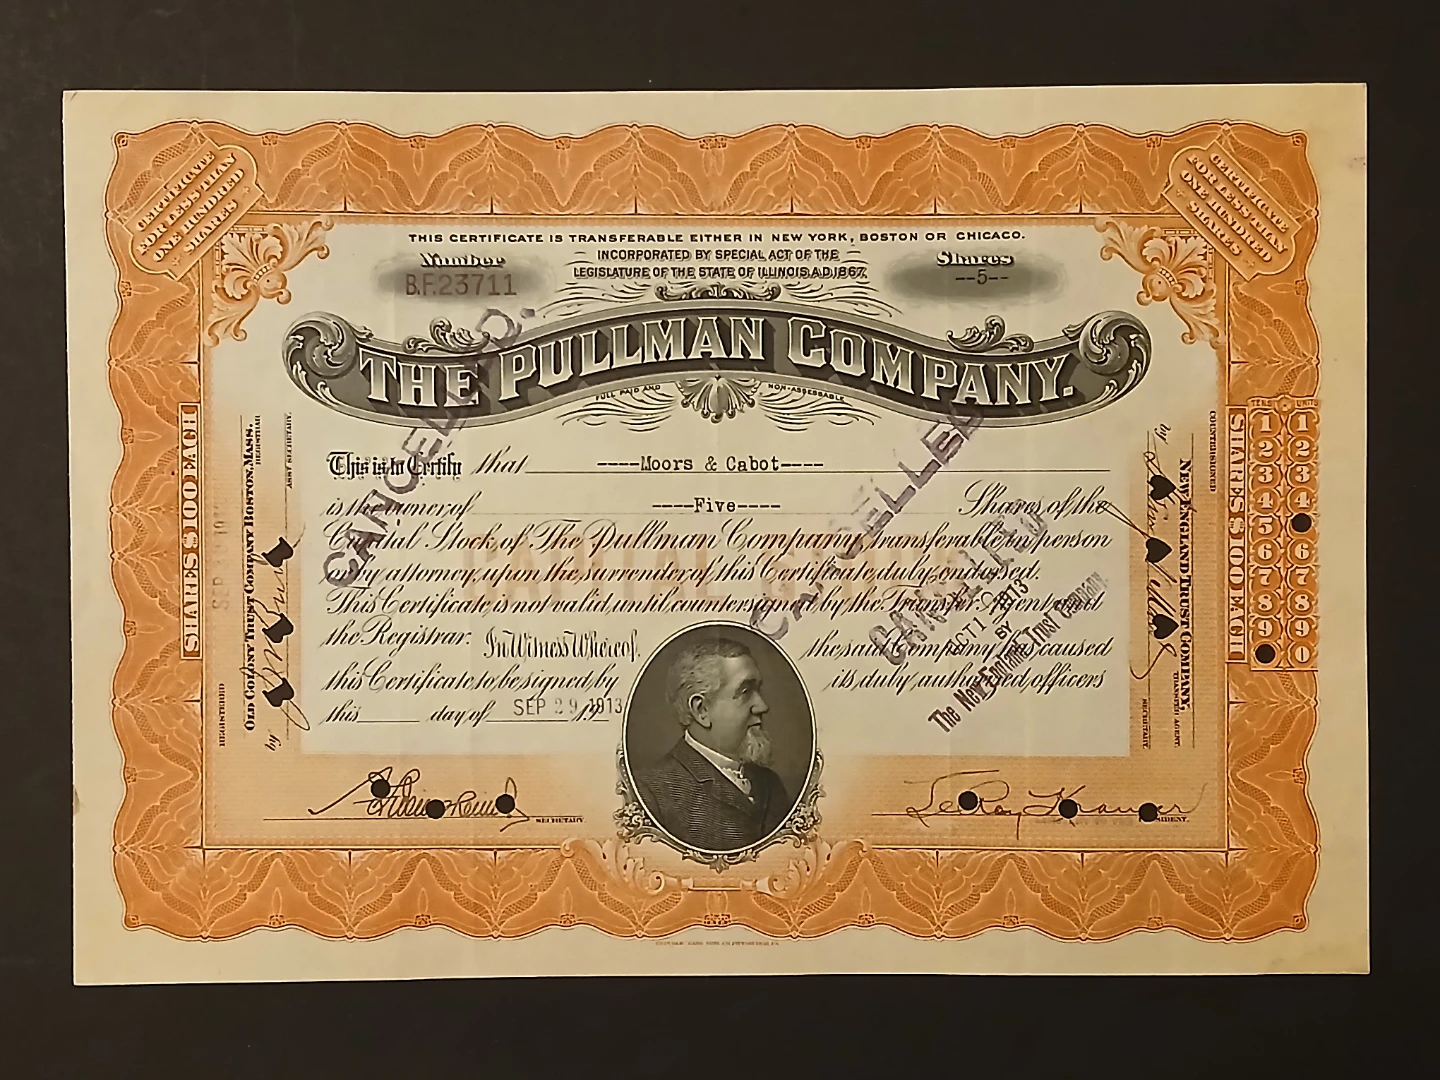 CERTIFICATE
FOR LESS THAN
ONE HUNDRED
SHARES
CERTIFICATE
FOR LESS THAN
ONE HUNDRED
SHARES
THIS CERTIFICATE IS TRANSFERABLE EITHER IN NEW YORK, BOSTON OR CHICAGO.
Number
B.F.23711
INCORPORATED BY SPECIAL ACT OF THE
LEGISLATURE OF THE STATE OF ILLINOIS, A.D. 1867.
Shares
--5--
THE PULLMAN COMPANY.
FULL PAID AND NON-ASSESSABLE
This is to Certify that ----Moors & Cabot----
is the owner of ----Five---- Shares of the
Capital Stock, of The Pullman Company, transferable in person
or by attorney, upon the surrender of this Certificate, duly endorsed.
This Certificate is not valid, until countersigned by the Transfer Agent and
the Registrar. In Witness Whereof, the said Company has caused
this Certificate, to be signed, by its duly authorized officers
this day of SEP 29 1913 19
CANCELLED.
CANCELLED
CANCELLED
OCT 1 - 1913
BY
The New England Trust Company.
SECRETARY.
LeRoy Kramer
PRESIDENT.
SHARES $100 EACH
REGISTERED
SEP 1913
OLD COLONY TRUST COMPANY BOSTON, MASS.
REGISTRAR
by
ASST SECRETARY.
by
COUNTERSIGNED
NEW ENGLAND TRUST COMPANY,
TRANSFER AGENT.
SECRETARY.
SHARES $100 EACH
TENS UNITS
1 1
2 2
3 3
4 4
5
6 6
7 7
8 8
9 9
0